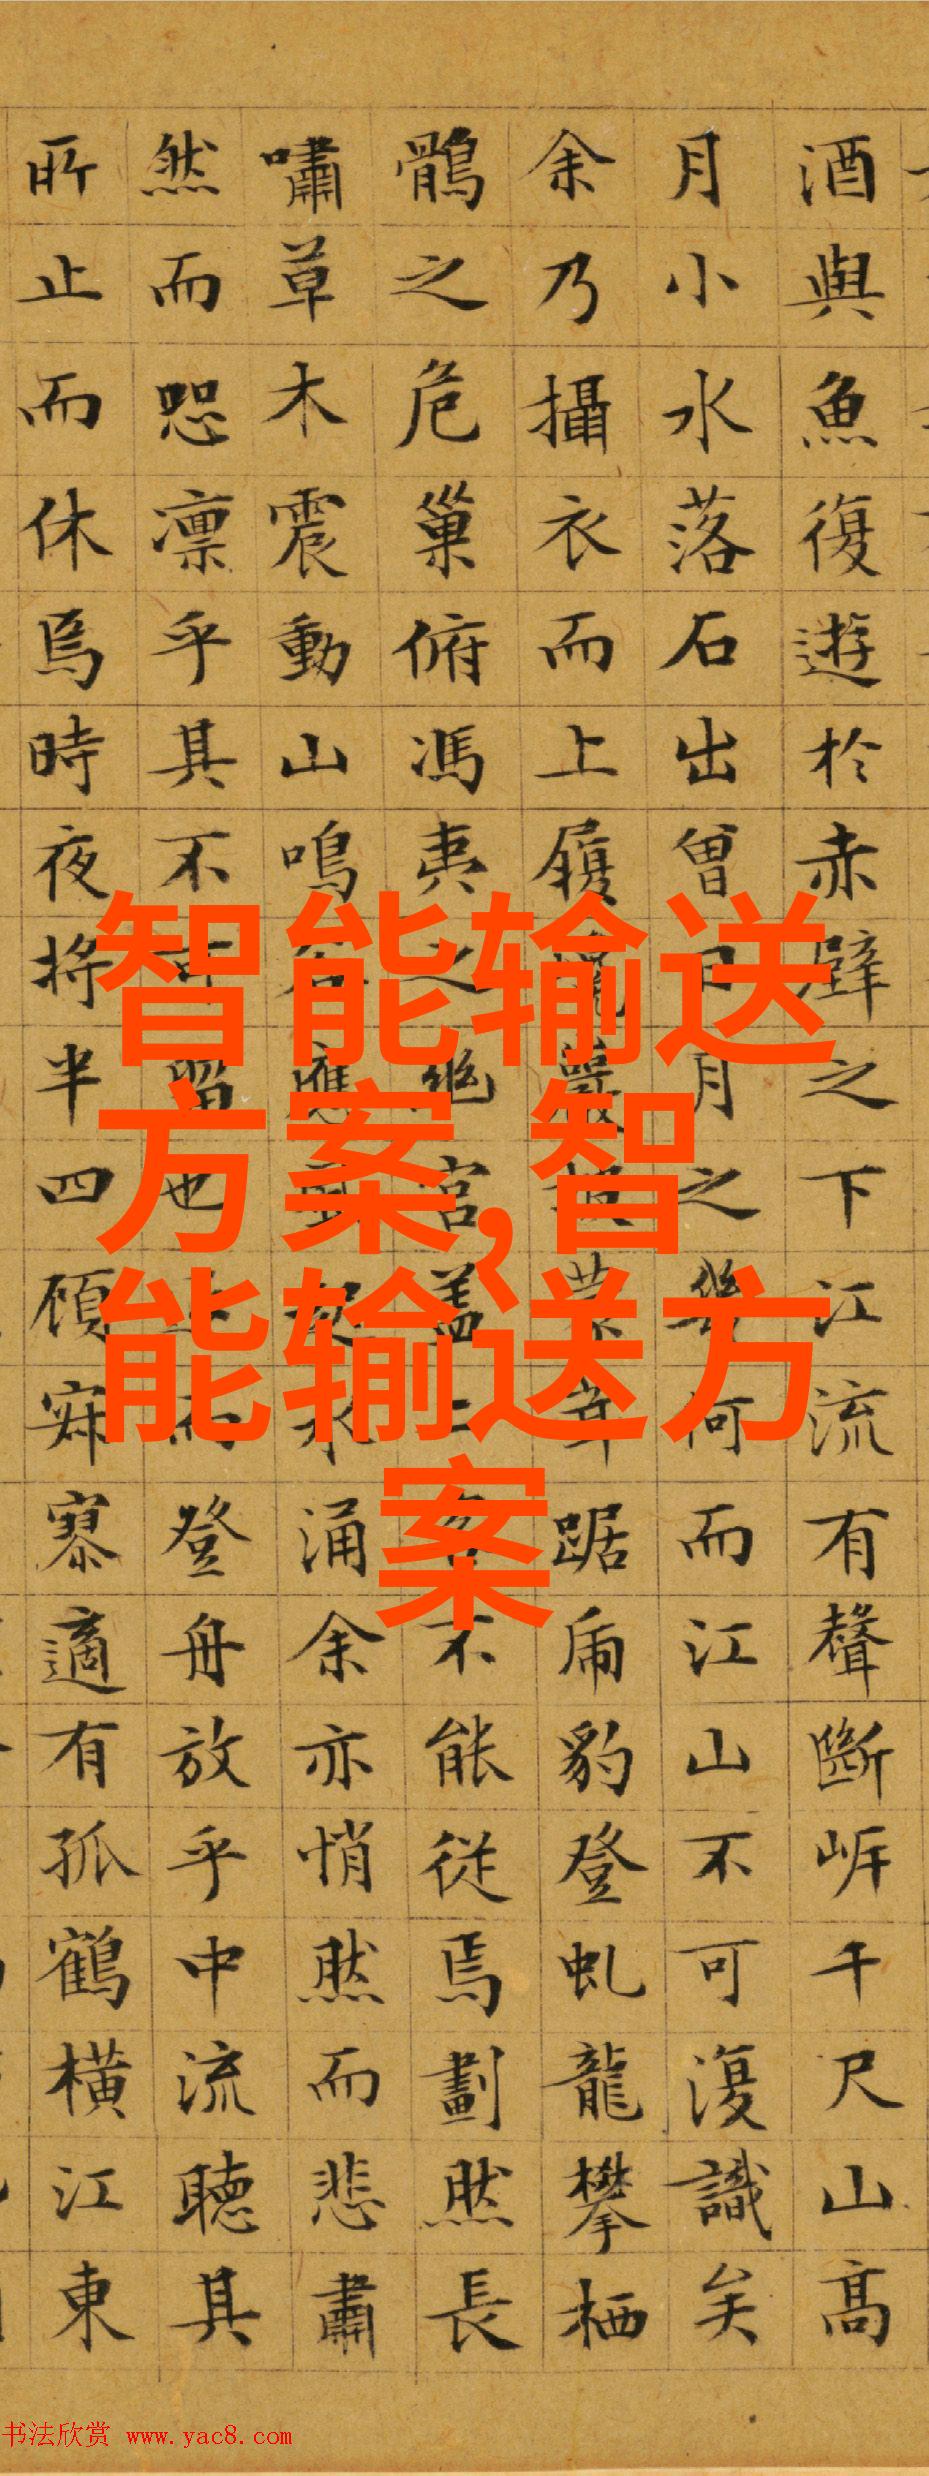 酒與魚復遊於赤壁之下江流有聲斷岸千尺山高
月小水落石出曾日月之幾何而江山不可復識矣
余乃攝衣而上履巉巖披蒙茸踞虎豹登虬龍攀栖
鶻之危巢俯馮夷之幽宮蓋二客不能從焉劃然長
嘯草木震動山鳴谷應風起水涌余亦悄然而悲肅
然而恐凛乎其不可留也反而登舟放乎中流聽其
所止而休焉時夜將半四顧寂寥適有孤鶴橫江東
智能输送
方案,智
能输送方
案
书法欣赏 www.yac8.com